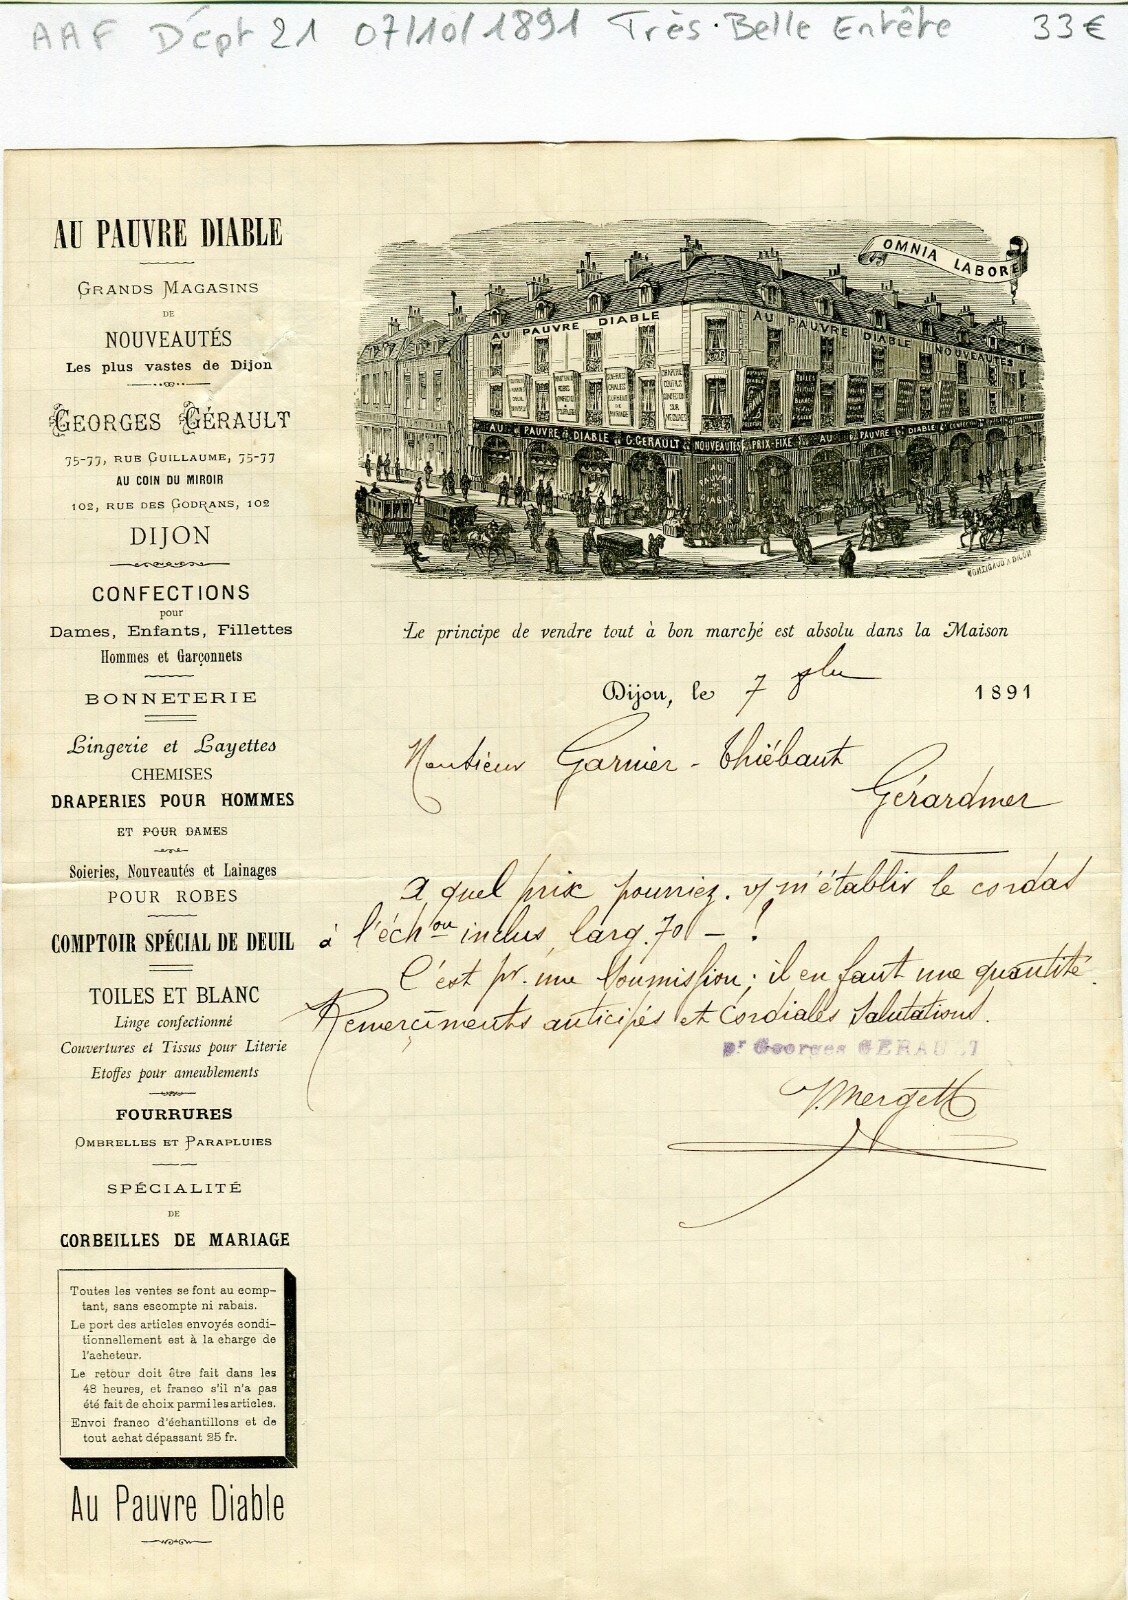 AAF Dépt 21 07/10/1891 Très Belle Entête 33€
AU PAUVRE DIABLE
GRANDS MAGASINS
DE
NOUVEAUTÉS
Les plus vastes de Dijon
GEORGES GÉRAULT
75-77, RUE GUILLAUME, 75-77
AU COIN DU MIROIR
102, RUE DES GODRANS, 102
DIJON
CONFECTIONS
pour
Dames, Enfants, Fillettes
Hommes et Garçonnets
BONNETERIE
Lingerie et Layettes
CHEMISES
DRAPERIES POUR HOMMES
ET POUR DAMES
Soieries, Nouveautés et Lainages
POUR ROBES
COMPTOIR SPÉCIAL DE DEUIL
TOILES ET BLANC
Linge confectionné
Couvertures et Tissus pour Literie
Etoffes pour ameublements
FOURRURES
OMBRELLES ET PARAPLUIES
SPÉCIALITÉ
DE
CORBEILLES DE MARIAGE
Toutes les ventes se font au comp-
tant, sans escompte ni rabais.
Le port des articles envoyés condi-
tionnellement est à la charge de
l'acheteur.
Le retour doit être fait dans les
48 heures, et franco s'il n'a pas
été fait de choix parmi les articles.
Envoi franco d'échantillons et de
tout achat dépassant 25 fr.
Au Pauvre Diable
OMNIA LABORE
AU PAUVRE DIABLE
AU PAUVRE DIABLE NOUVEAUTÉS
AU PAUVRE DIABLE G. GERAULT NOUVEAUTÉS PRIX-FIXE AU PAUVRE DIABLE
AU PAUVRE DIABLE
Le principe de vendre tout à bon marché est absolu dans la Maison
Dijon, le 7 1891
Monsieur Garnier-Thiébaut
Gérardmer
A quel prix pourriez. v/ m'établir le cordat
à l'éch.ou inclus, larg. 70 - ?
C'est pr. une Soumission; il en faut une quantité.
Remerciments anticipés et Cordiales Salutations.
pr Georges GERAULT